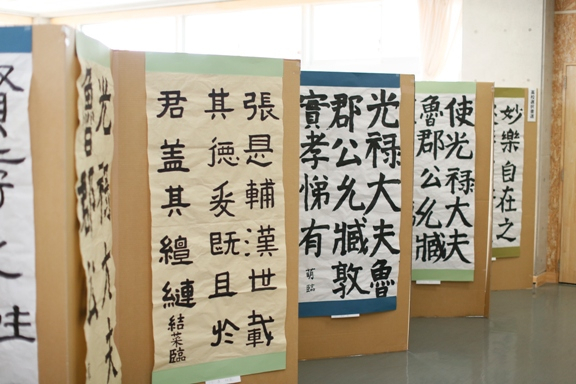 妙樂自在之
使光禄大夫
魯郡公允臧
光禄大夫魯
郡公允臧敦
實孝悌有
萌臨
張是輔漢世載
其德爰既且於
君蓋其纏縺
結菜臨
光禄大夫
魯郡